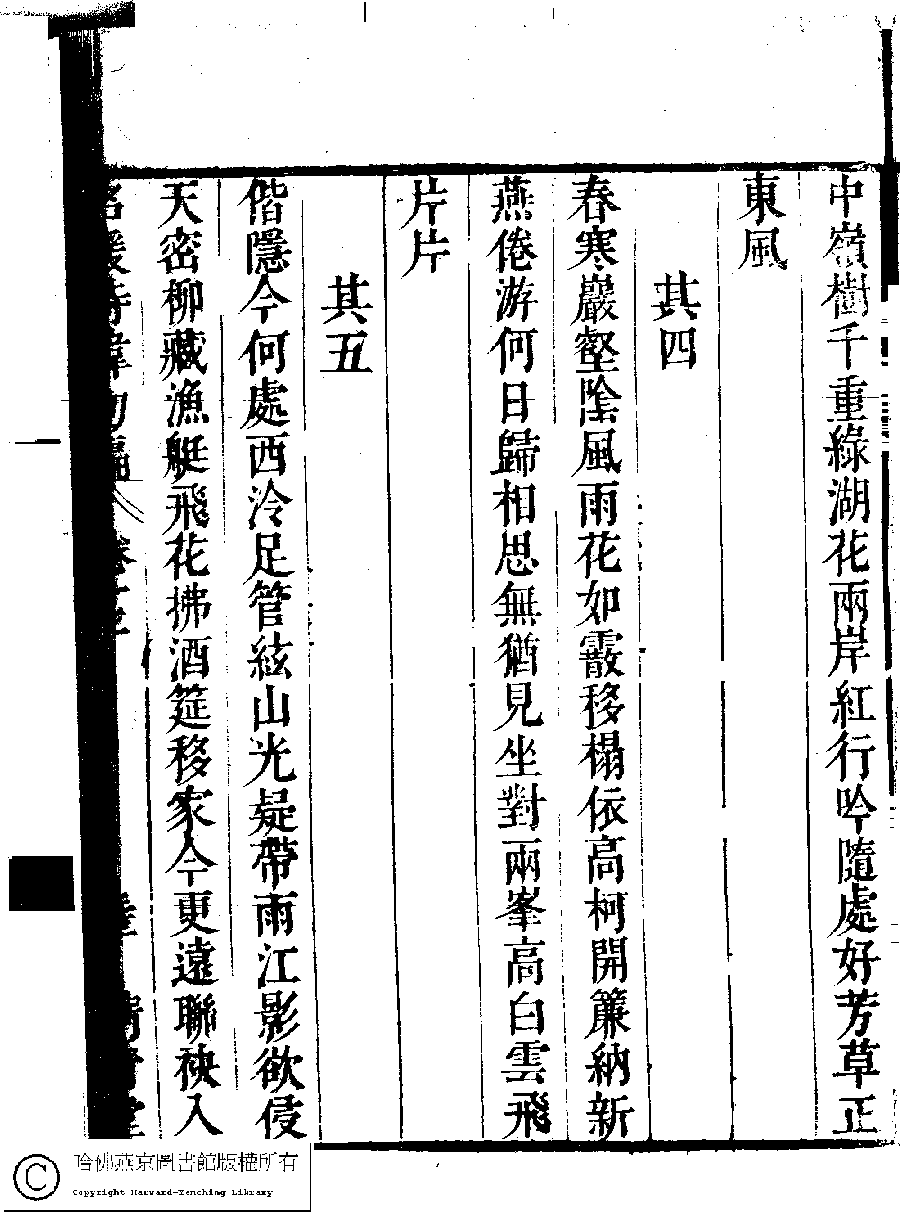 中嶺樹千重綠湖花兩岸紅行吟隨處好芳草正
東風
其四
春寒巖壑陰風雨花如霰移榻依高柯開簾納新
燕倦游何日歸相思無猶見坐對兩峯高白雲飛
片片
其五
偕隱今何處西泠足管絃山光疑帶雨江影欲侵
天密柳藏漁艇飛花拂酒筵移家今更遠聯袂入
名媛詩緯初編
哈佛燕京圖書館版權所有
Copyright Harvard-Yenching Library